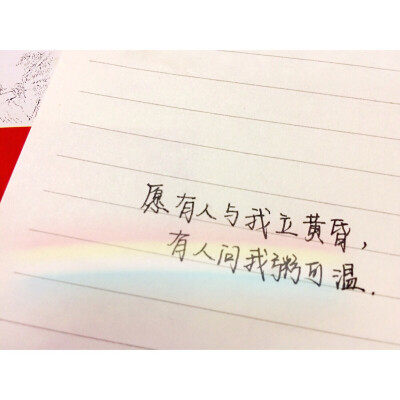 愿有人与我立黄昏，
有人问我粥可温.